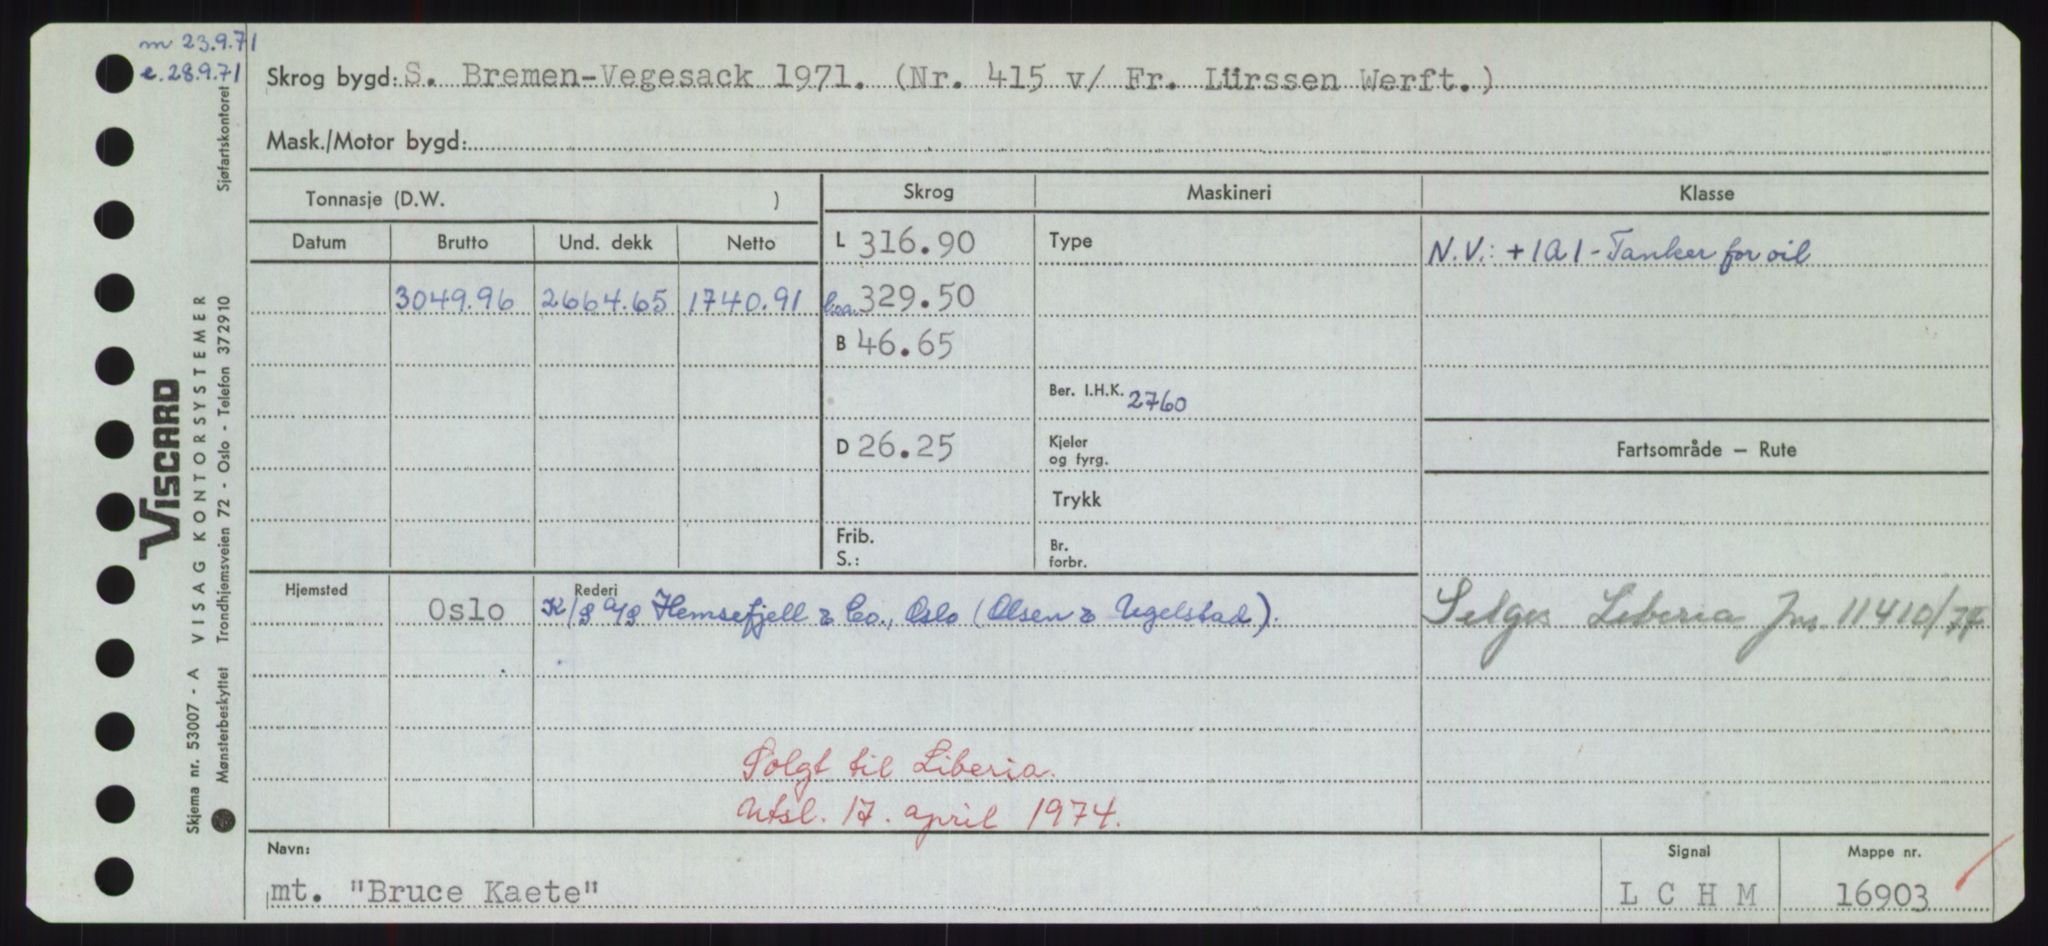 m 23.9.71
e. 28.9.71
Skrog bygd: S. Bremen-Vegesack 1971. (Nr. 415 v/ Fr. Lürssen Werft.)
Mask./Motor bygd:
Tonnasje (D.W. )
Skrog Maskineri Klasse
Datum Brutto Und. dekk Netto
L 316.90 Type N.V.: +1A1 - Tanker for oil
3049.96 2664.65 1740.91 l.oa. 329.50
B 46.65
Ber. I.H.K. 2760
D 26.25 Kjeler og fyrg. Fartsområde — Rute
Trykk
Frib.
S.:
Br. forbr.
Hjemsted Oslo Rederi K/S A/S Hemsefjell & Co., Oslo (Olsen & Ugelstad).
Selges Liberia Jnr. 11410/74
Solgt til Liberia.
Utsl. 17. april 1974.
Navn: mt. "Bruce Kaete"
Signal L C H M
Mappe nr. 16903
Sjøfartskontoret
VISCARD
Skjema nr. 53007 - A VISAG KONTORSYSTEMER
Mønsterbeskyttet Trondhjemsveien 72 - Oslo - Telefon 372910